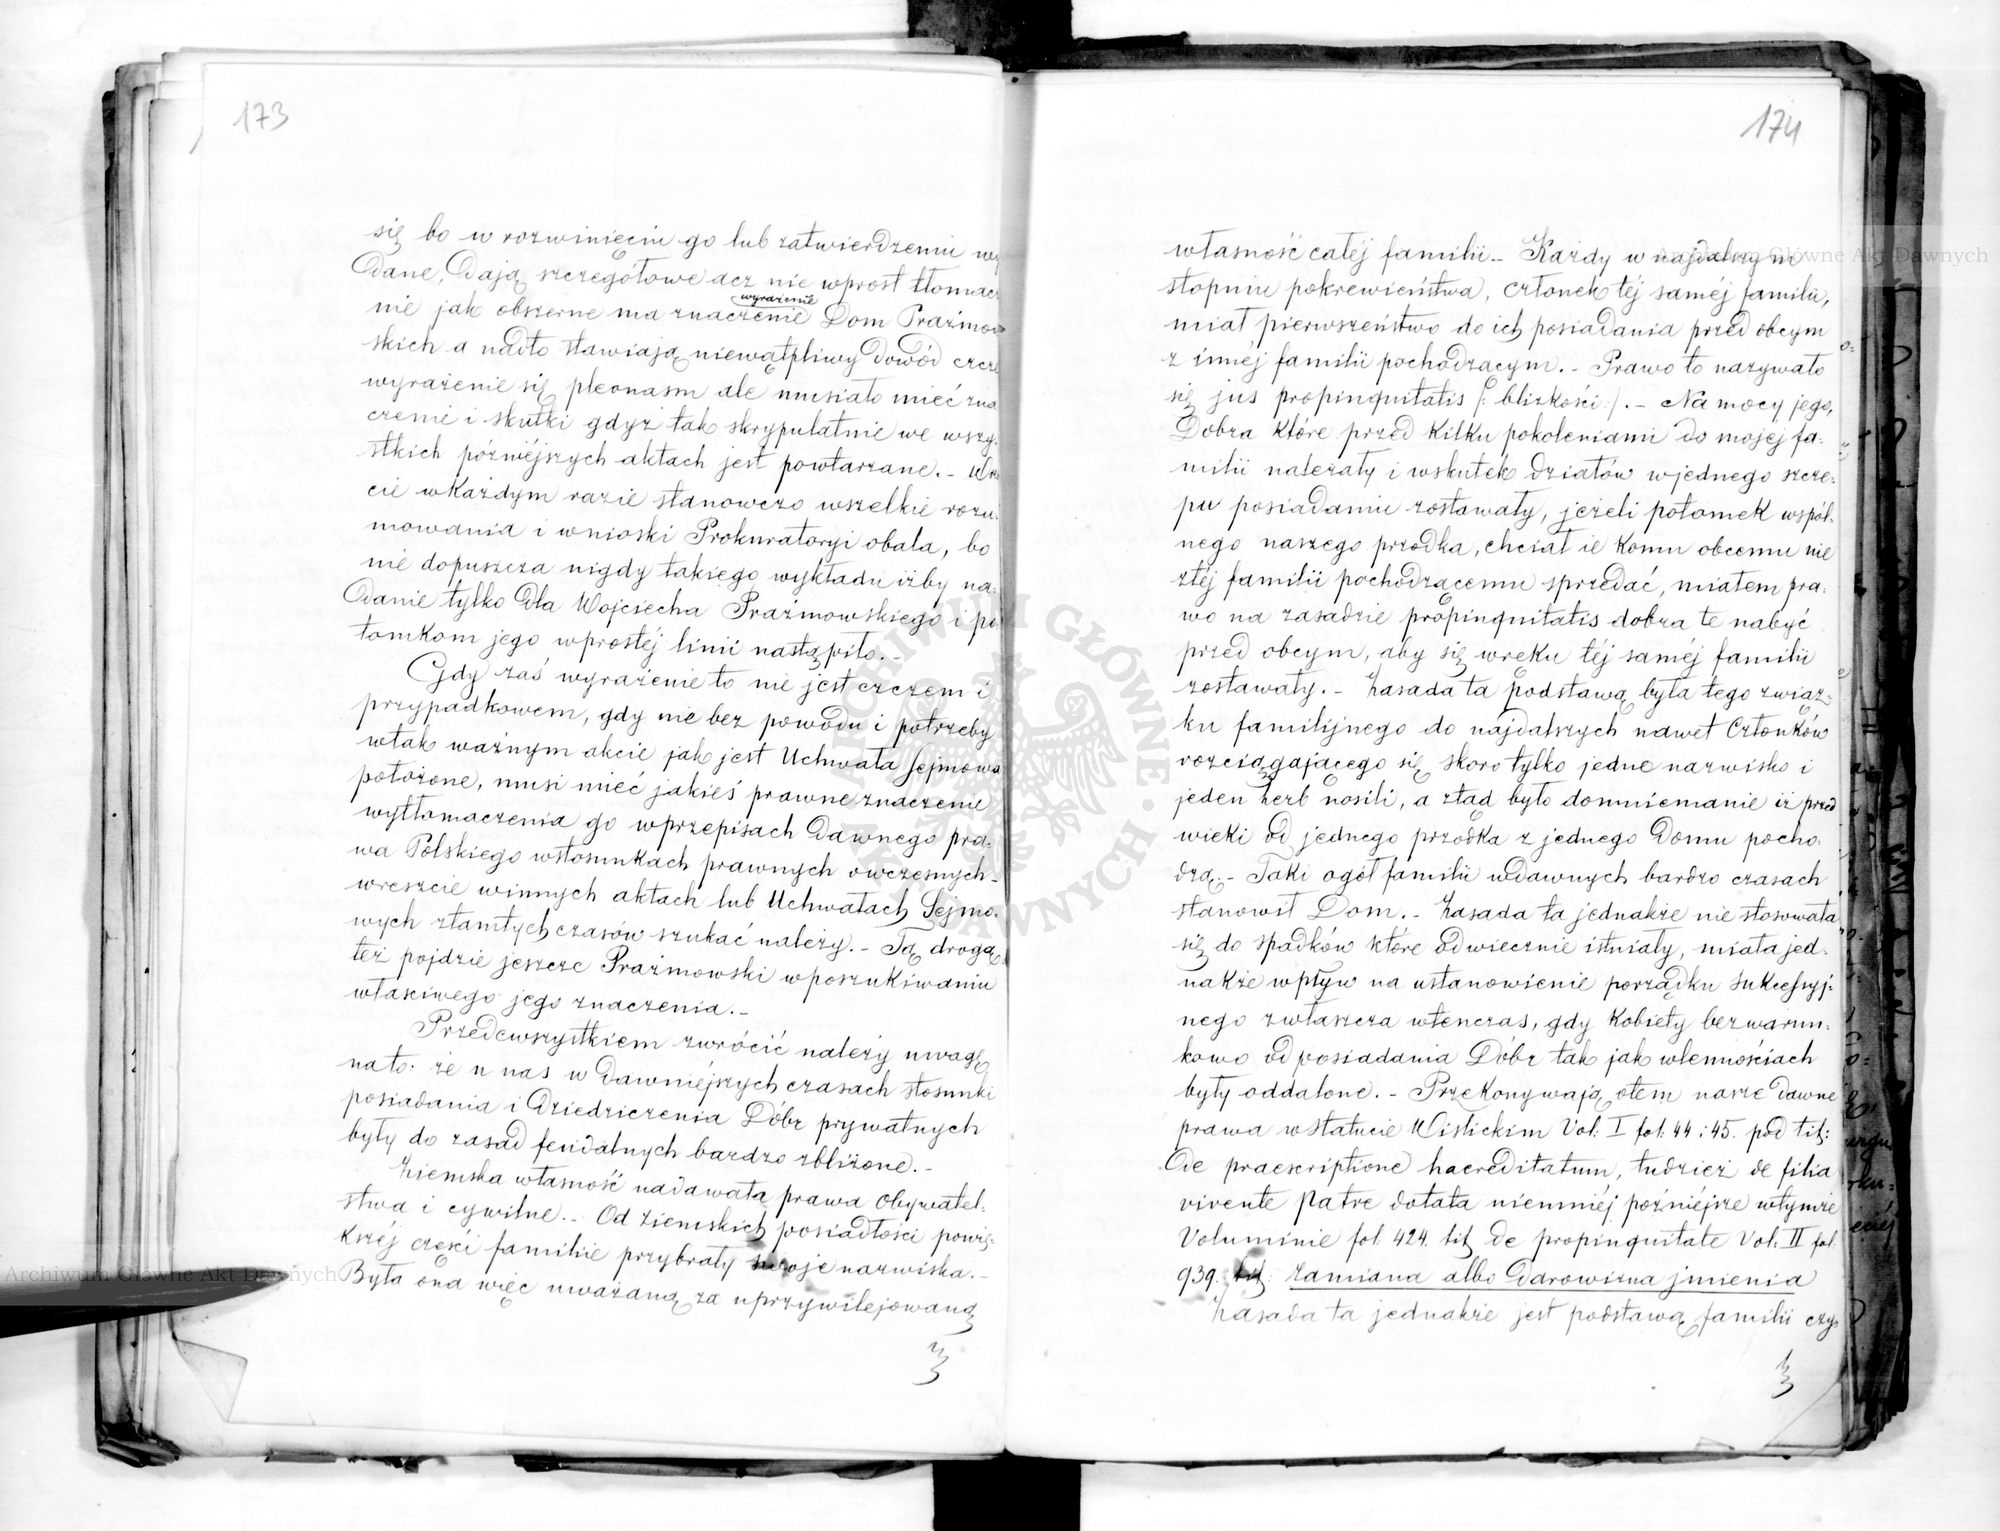 173
się bo w rozwinięciu go lub zatwierdzeniu wy
dane, dają szczegółowe acz nie wprost tłomacze
nie jak obszerne ma znaczenie wyrażenie Dom Prażmow
skich a nadto stawiają niewątpliwy dowód czcze
wyrażenie się pleonasm ale musiało mieć zna
czenie i skutki gdyż tak skrypulatnie we wszy-
stkich późniéjszych aktach jest powtarzane. –
cie w Każdym razie stanowczo wszelkie rozu-
mowania i wnioski Prokuratoryi obala, bo
nie dopuszcza nigdy takiego wykładu iżby na-
danie tylko dla Wojciecha Prażmowskiego i po-
tomkom jego wprostéj linii nastąpiło. –
Gdy zaś wyrażenie to nie jest czczem i
przypadkowem, gdy nie bez powodu i potrzeby
wtak ważnym akcie jak jest Uchwała Sejmowa
położone, musi mieć jakieś prawne znaczenie
wytłomaczenia go wprzepisach dawnego pra-
wa Polskiego wstosunkach prawnych owczesnych –
wreszcie winnych aktach lub Uchwałach Sejmo-
wych ztamtych czasów szukać należy. – Tą drogą
też pojdzie jeszcze Prażmowski wposzukiwaniu
właściwego jego znaczenia. –
Przedewszystkiem zwrócić należy uwagę
nato: że u nas w dawniéjszych czasach stosunki
posiadania i dziedziczenia Dóbr prywatnych
były do zasad feudalnych bardzo zbliżone. –
Ziemska własność nadawała prawa Obywatel-
stwa i cywilne. – Od ziemskich posiadłości powię-
kszéj części familie przybrały swoje nazwiska. –
Była ona więc uważaną za uprzywilejowaną
174
własność całéj familii – Każdy w najdalszym
stopniu pokrewieństwa, członek téj saméj familii,
miał pierwszeństwo do ich posiadania przed obcym
z innéj familii pochodzącym. – Prawo to nazywało
się jus propinquitatis /: blizkości :/. – Na mocy jego,
Dobra które przed kilku pokoleniami do mojej fa-
milii należały i wskutek działów wjednego szcze-
pu posiadaniu zostawały, jeżeli potomek wspól-
nego naszego przodka, chciał ie komu obcemu nie
ztéj familii pochodzącemu sprzedać, miałem pra-
wo na zasadzie propinquitatis dobra te nabyć
przed obcym, aby się wręku téj saméj familii
zostawały. – Zasada ta podstawą była tego związ-
ku familijnego do najdalszych nawet Członków
rozciągającego się skoro tylko jedne nazwisko i
jeden herb nosili, a ztąd było domniemanie iż przed
wieki od jednego przodka z jednego Domu pocho-
dzą. – Taki ogół familii wdawnych bardzo czasach
stanowił Dom. – Zasada ta jednakże nie stosowała
się do spadków które odwiecznie istniały, miała jed-
nakże wpływ na ustanowienie porządku sukcessyj-
nego zwłaszcza wtenczas, gdy Kobiety bezwarun-
kowo od posiadania Dóbr tak jak wlennościach
były oddalone. – Przekonywają otem nasze dawne
prawa wstatucie Wislickim Vol: I fol: 44 i 45. pod tit:
De praescriptione haereditatum, tudzież de filia
vivente Patre dotata niemniéj późniéjsze wtymże
Voluminie fol. 424. tit de propinquitate Vol: II fol.
939. tit. zamiana albo darowizna jmienia
Zasada ta jednakże jest podstawą familii czy-